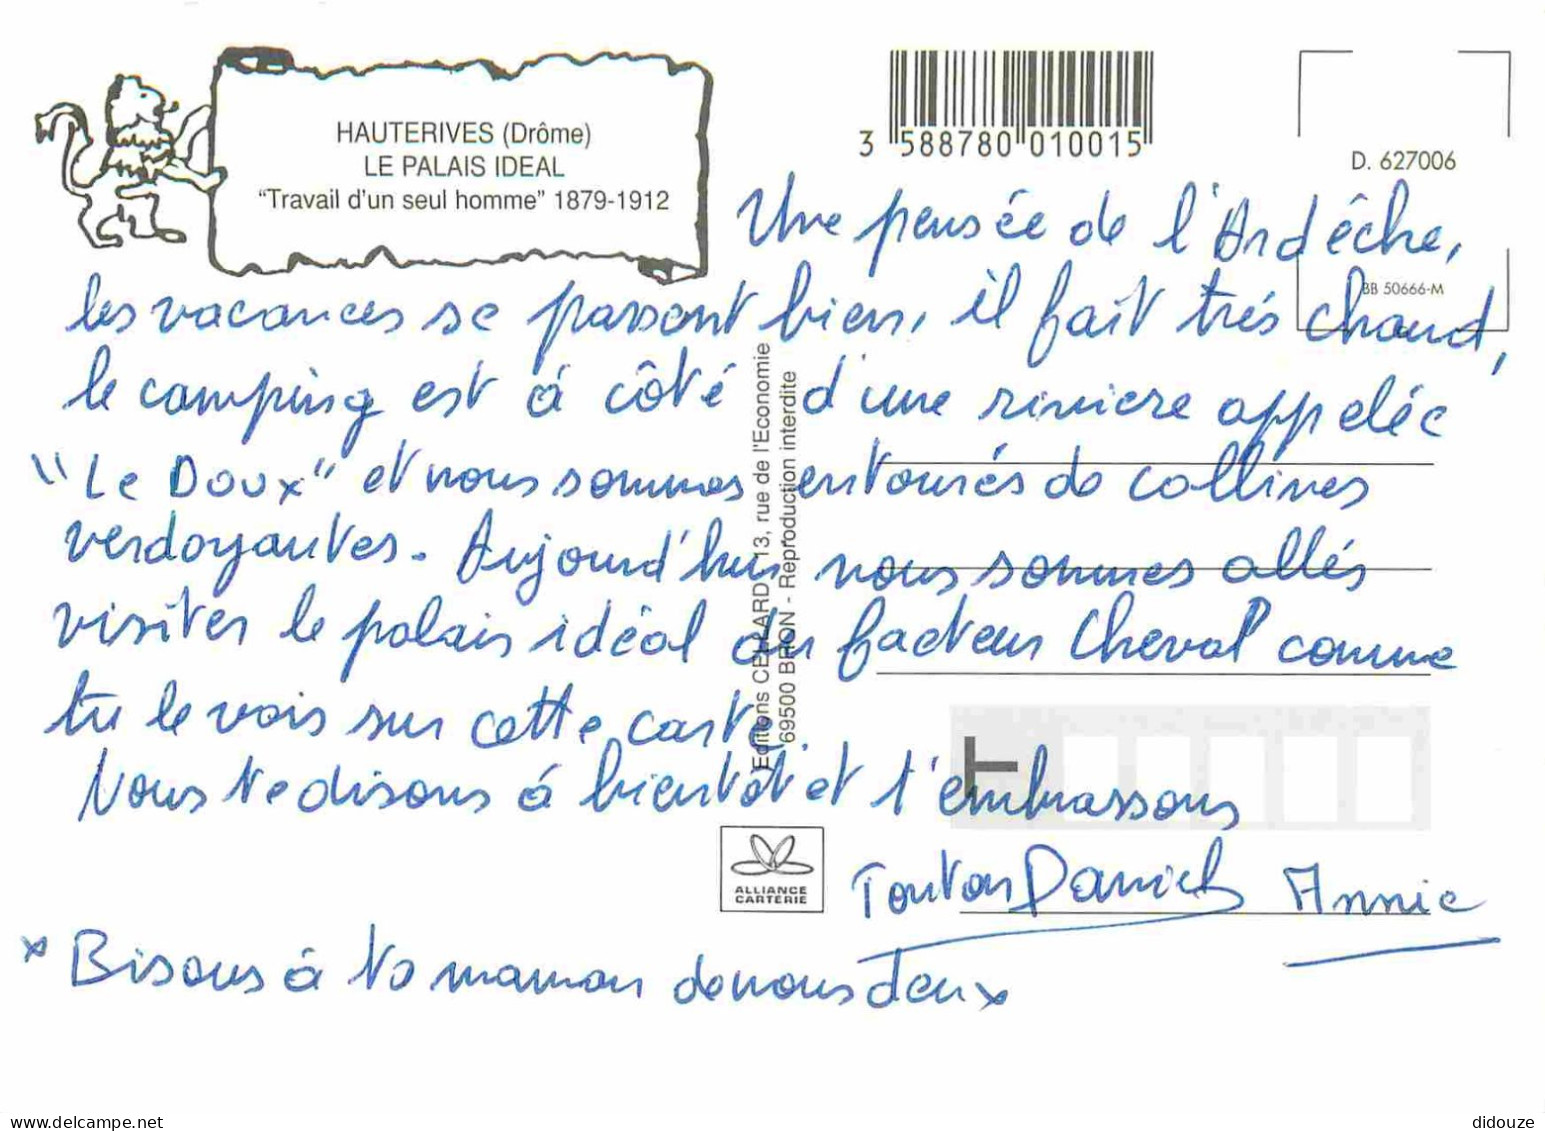 HAUTERIVES (Drôme)
LE PALAIS IDEAL
"Travail d'un seul homme" 1879-1912
3 588780 010015
D. 627006
BB 50666-M
Une pensée de l'Ardèche,
les vacances se passent bien, il fait trés chaud,
le camping est á côté d'une riviere appelée
"Le Doux" et nous sommes entourés de collines
verdoyantes. Aujourd'hui nous sommes allés
visiter le palais idéal du facteur Cheval comme
tu le vois sur cette carte.
Nous te disons á bientôt et t'embrassons
Tonton Daniel Annie
x Bisous á ta maman de nous deux
Editions CELLARD 13, rue de l'Economie
69500 BRON - Reproduction interdite
ALLIANCE
CARTERIE
delcampe.net
didouze